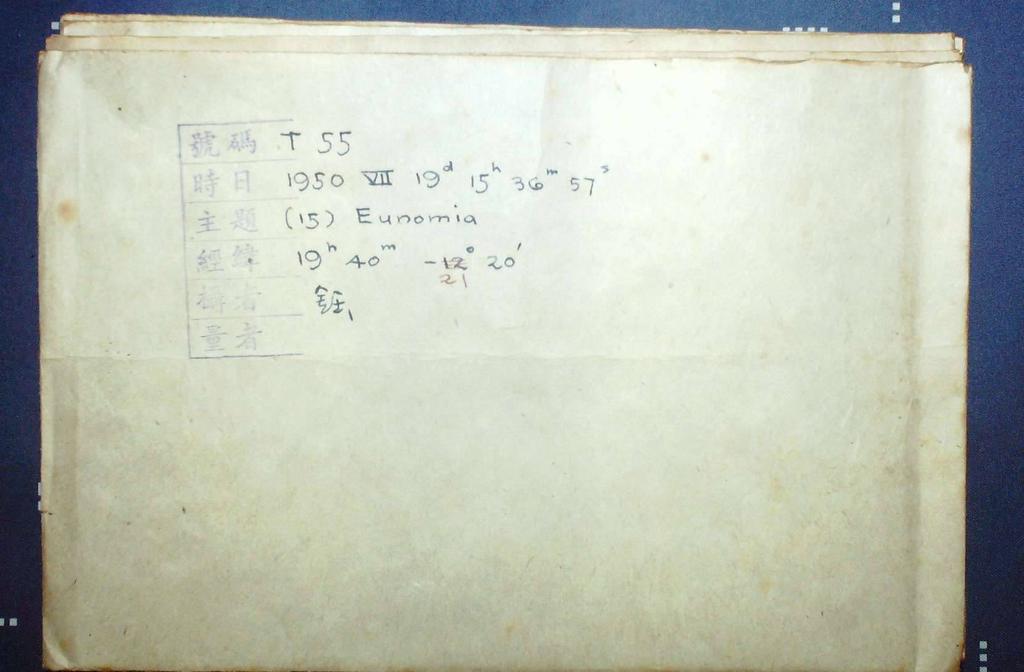 號碼 T 55
時日 1950 VII 19ᵈ 15ʰ 36ᵐ 57ˢ
主題 (15) Eunomia
經緯 19ʰ 40ᵐ -12° 20′
21
量者